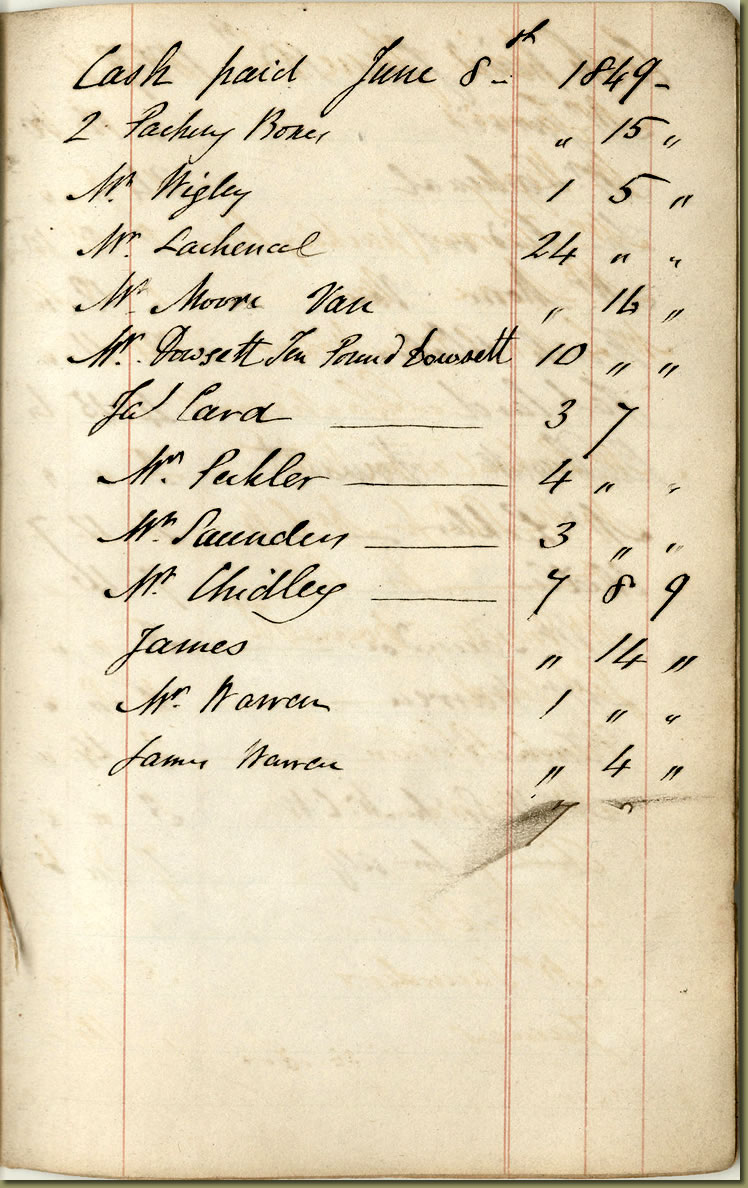 Cash paid June 8th 1849-
2 Packing Boxes " 15 "
Mr. Wigley 1 5 "
Mr. Lachenal 24 " "
Mr. Moore Van " 16 "
Mr. Dowsett Ten Pound Dowsett 10 " "
Jas Card 3 7
Mr. Peehler 4 " "
Mr. Saunders 3 " "
Mr. Chidley 7 8 9
James " 14 "
Mr. Warren 1 " "
James Warren " 4 "